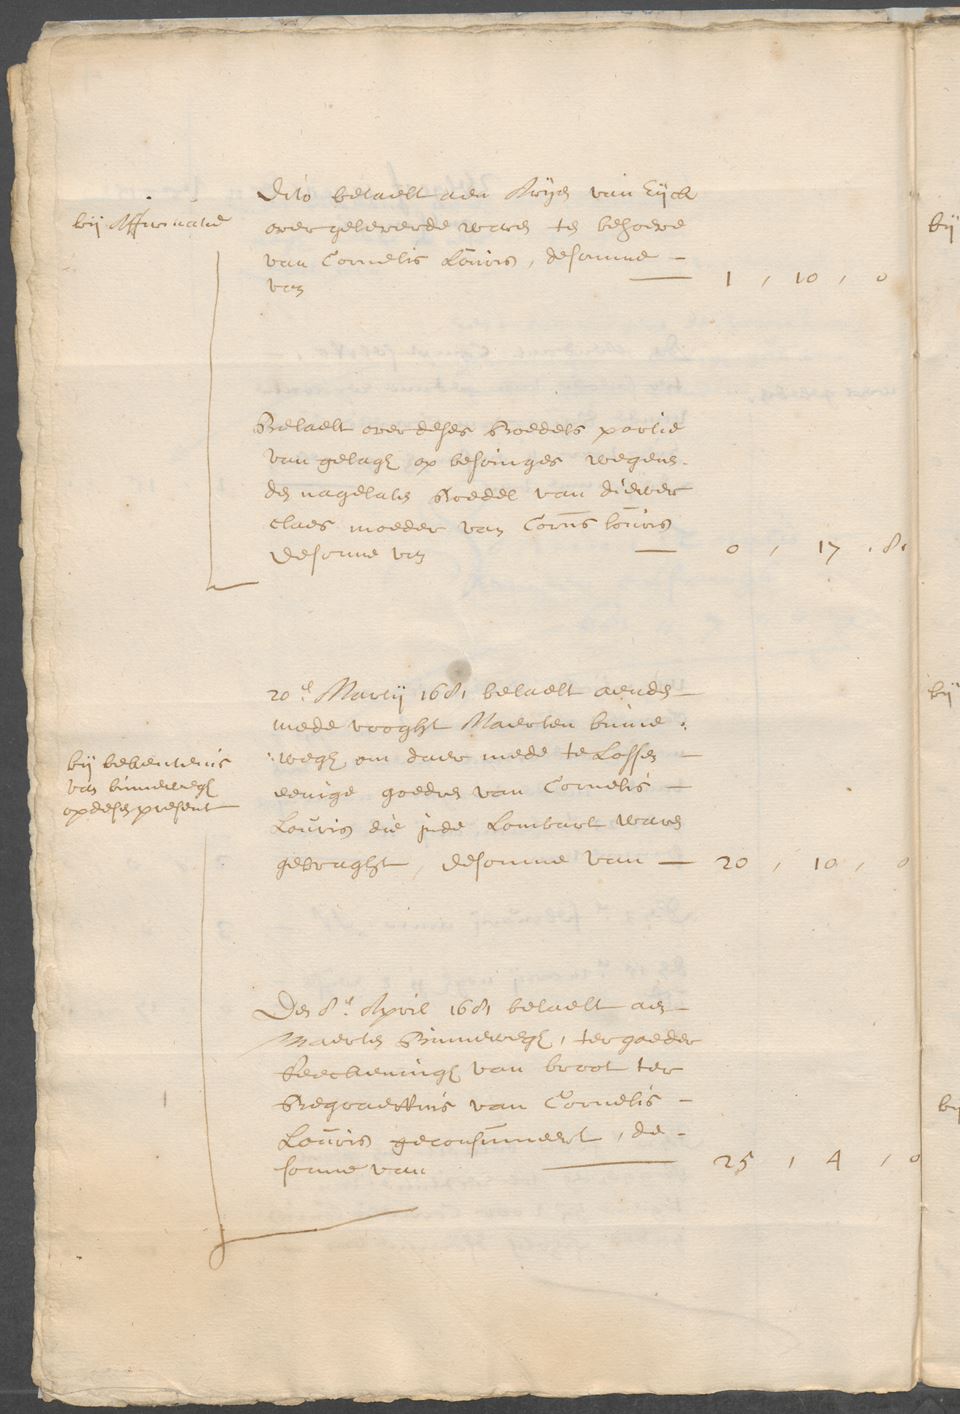 bij Affirmatie
Dito betaelt aen Arijen van Eijck
over geleverde waren te behoeve
van Cornelis Louris, de somme
van 1 , 10 , 0
Betaelt over deses Boedels portie
van gelagh op besoinges wegens
den nagelaten Boedel van diewer
claes moeder van Corns louris
de somme van 0 , 17 , 8
bij bekentenis
van binnewegh
op desen present
20e Martij 1681 betaelt aende
mede vooght Maerten binne
wegh om daer mede te Lossen
eenige goederen van Cornelis
Louris die inde Lombart waren
gebraght, de somme van 20 , 10 , 0
Den 8e April 1681 betaelt aen
Maerten Binnewegh, ter goeder
Reekeningh van broot ter
Begraeffenis van Cornelis
Louris geconsumeert, de
somme van 25 , 4 , 0
bij
bij
bij